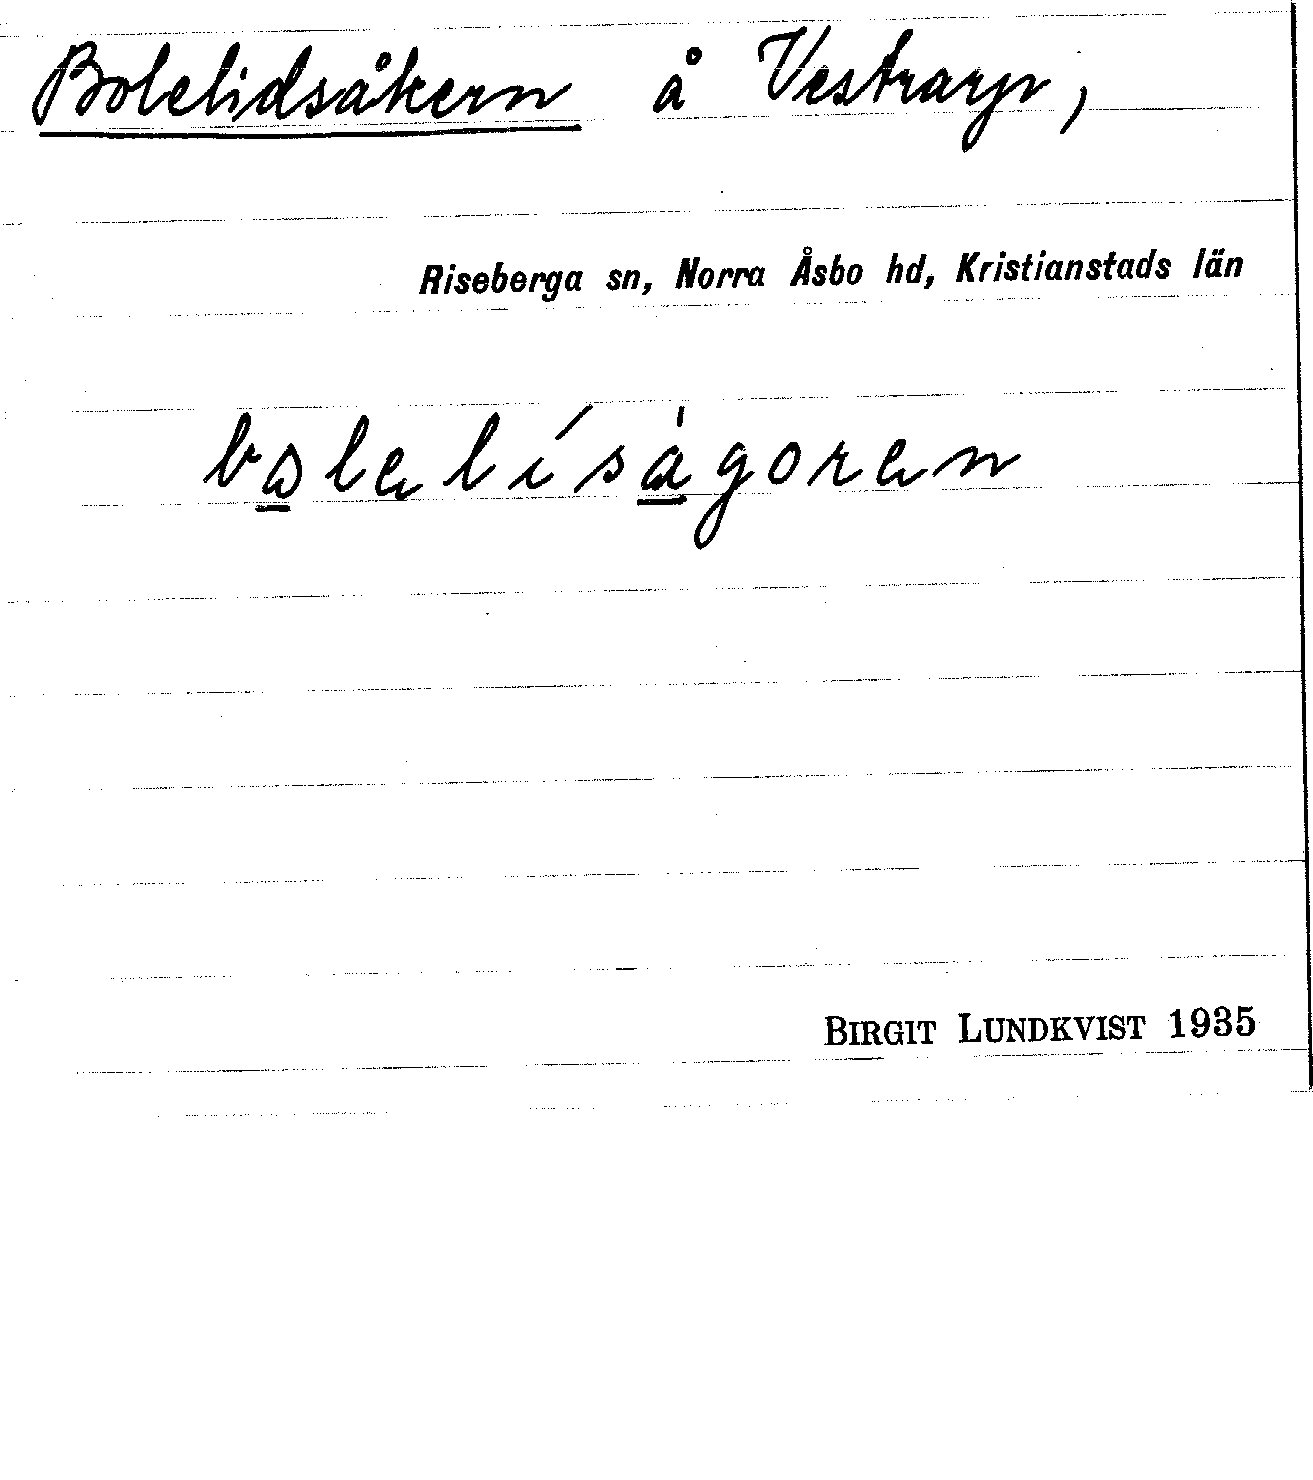 Bolelidsåkern å Vestrarp,
Riseberga sn, Norra Åsbo hd, Kristianstads län
bolelísågoren
BIRGIT LUNDKVIST 1935